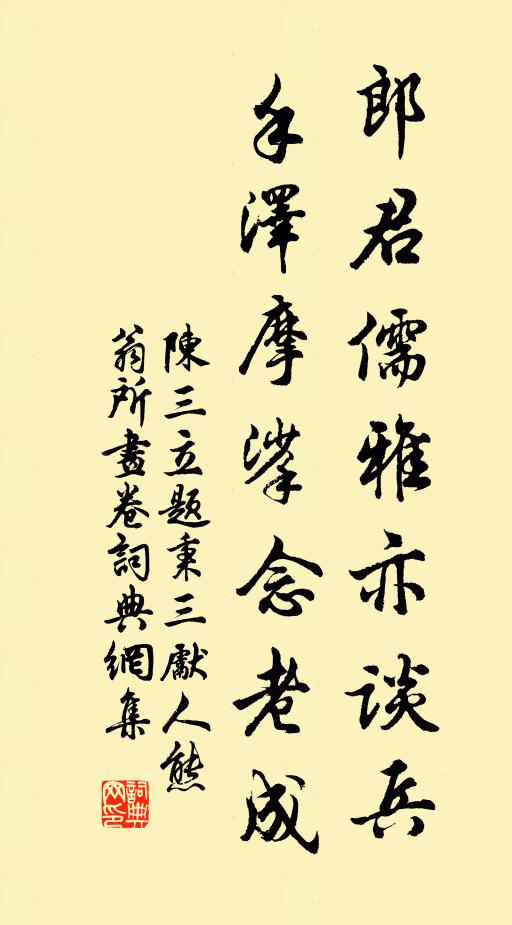 郎君儒雅亦談兵
手澤摩挲念老成
陳三立題秉三獻人熊
翁所畫卷詞典網集
詞典
网印